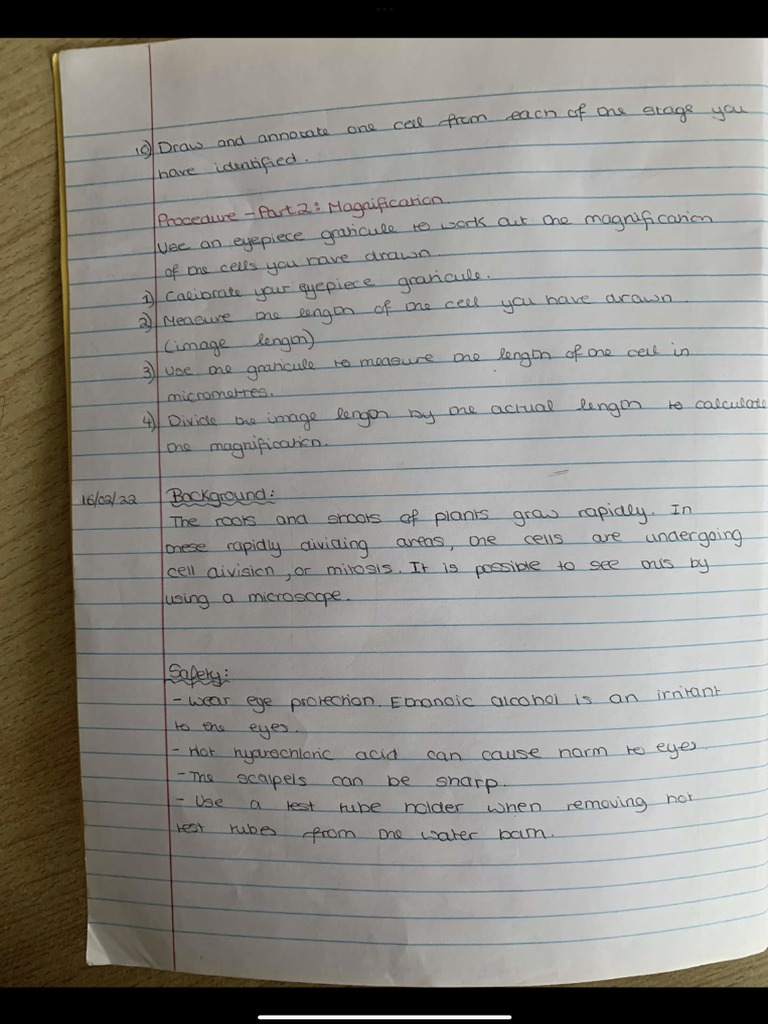 10) Draw and annotate one cell from each of the stage you
have identified.
Procedure - Part 2: Magnification
Use an eyepiece graticule to work out the magnification
of the cells you have drawn
1) Calibrate your eyepiece graticule.
2) Measure the length of the cell you have drawn
(image length)
3) Use the graticule to measure the length of the cell in
micrometres.
4) Divide the image length by the actual length to calculate
the magnification.
16/02/22 Background:
The roots and shoots of plants grow rapidly. In
these rapidly dividing areas, the cells are undergoing
cell division, or mitosis. It is possible to see this by
using a microscope.
Safety:
- Wear eye protection. Ethanoic alcohol is an irritant
to the eyes.
- Hot hydrochloric acid can cause harm to eyes.
- The scalpels can be sharp.
- Use a test tube holder when removing hot
test tubes from the water bath.